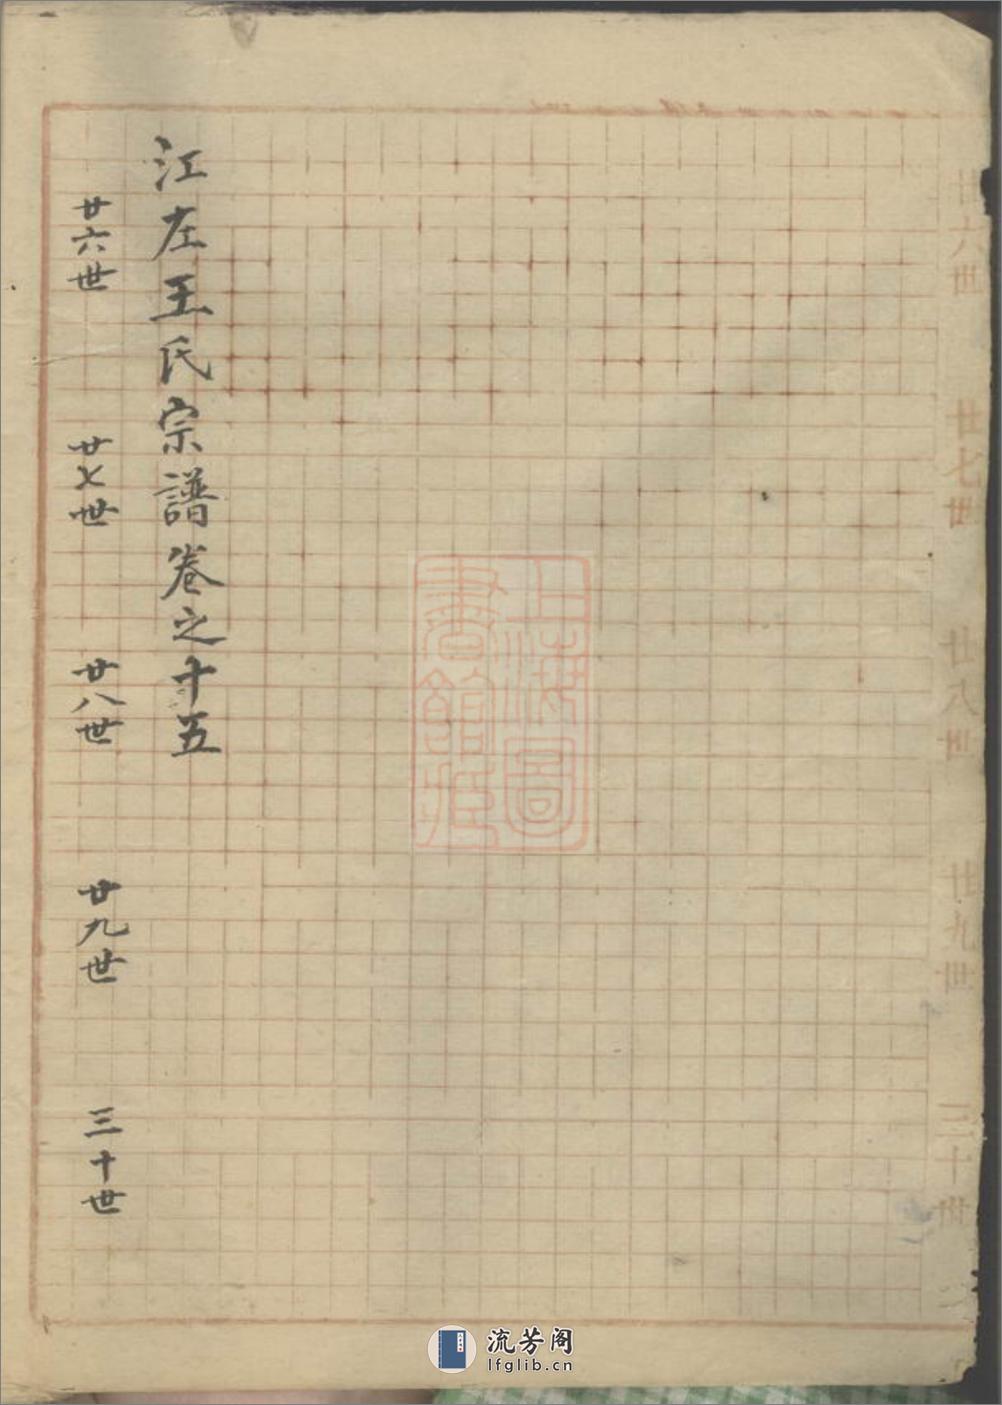 廿六世
廿七世
廿八世
廿九世
三十世
江左王氏宗譜卷之十五
廿六世
廿七世
廿八世
廿九世
三十世
上海圖書館藏
流芳阁
lfglib.cn